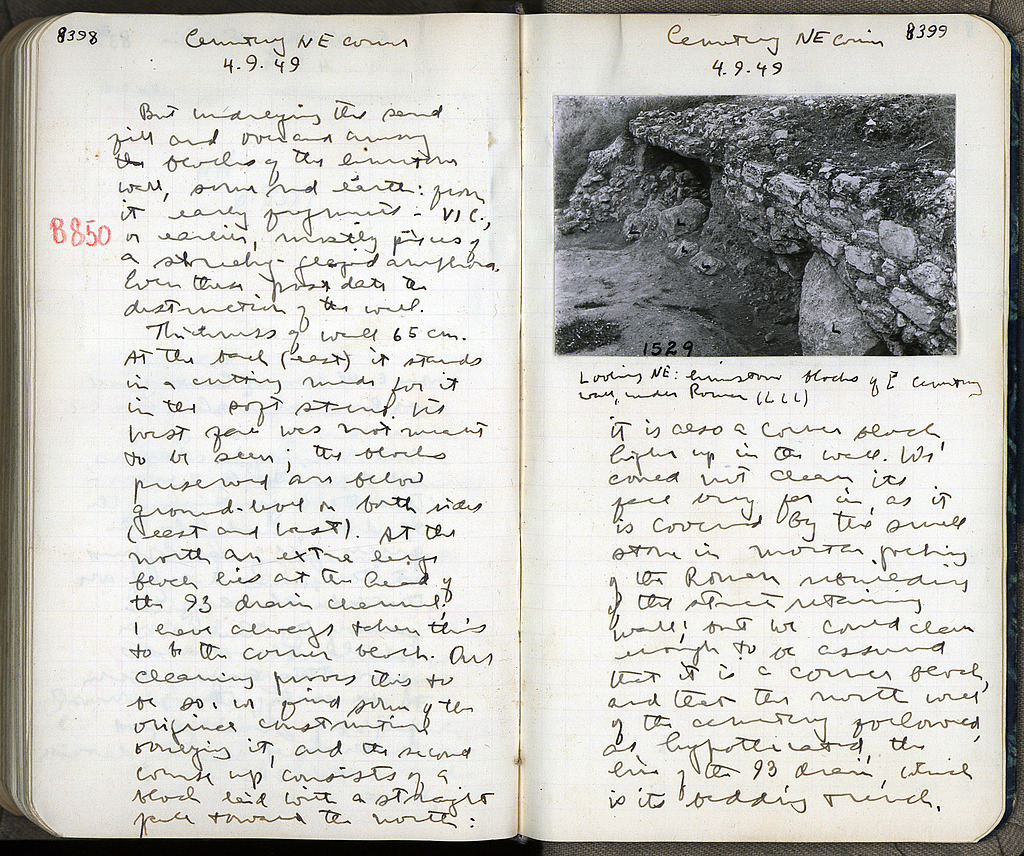 8398
Cemetery NE corner
4.9.49
But underlying this sand
fill and over and among
the blocks of the limestone
wall, some red earth: from
it early fragments - VI C.,
B850
or earlier, mostly pieces of
a streaky-glazed amphora.
Even these post date the
destruction of the wall.
Thickness of wall 65 cm.
At the back (east) it stands
in a cutting made for it
in the soft stereo. Its
west face was not meant
to be seen; the blocks
preserved are below
ground-level on both sides
(east and west). At the
north an extra large
block lies at the head of
the 93 drain channel;
I have always taken this
to be the corner block. Our
cleaning proves this to
be so: we find some of the
original construction
underlying it, and the second
course up, consists of a
block laid with a straight
face toward the north:
8399
Cemetery NE corner
4.9.49
L
L
L
L
L
1529
Looking NE: limestone blocks of cemetery
wall, under Roman (LLL)
it is also a corner block,
higher up in the wall. We
could not clean its
face very far in, as it
is covered by the small
stone in mortar packing
of the Roman rebuilding
of the street retaining
wall; but we could clean
enough to be assured
that it is a corner block,
and that the north wall
of the cemetery followed,
as hypothecated, the
line of the 93 drain, which
is its bedding trench.